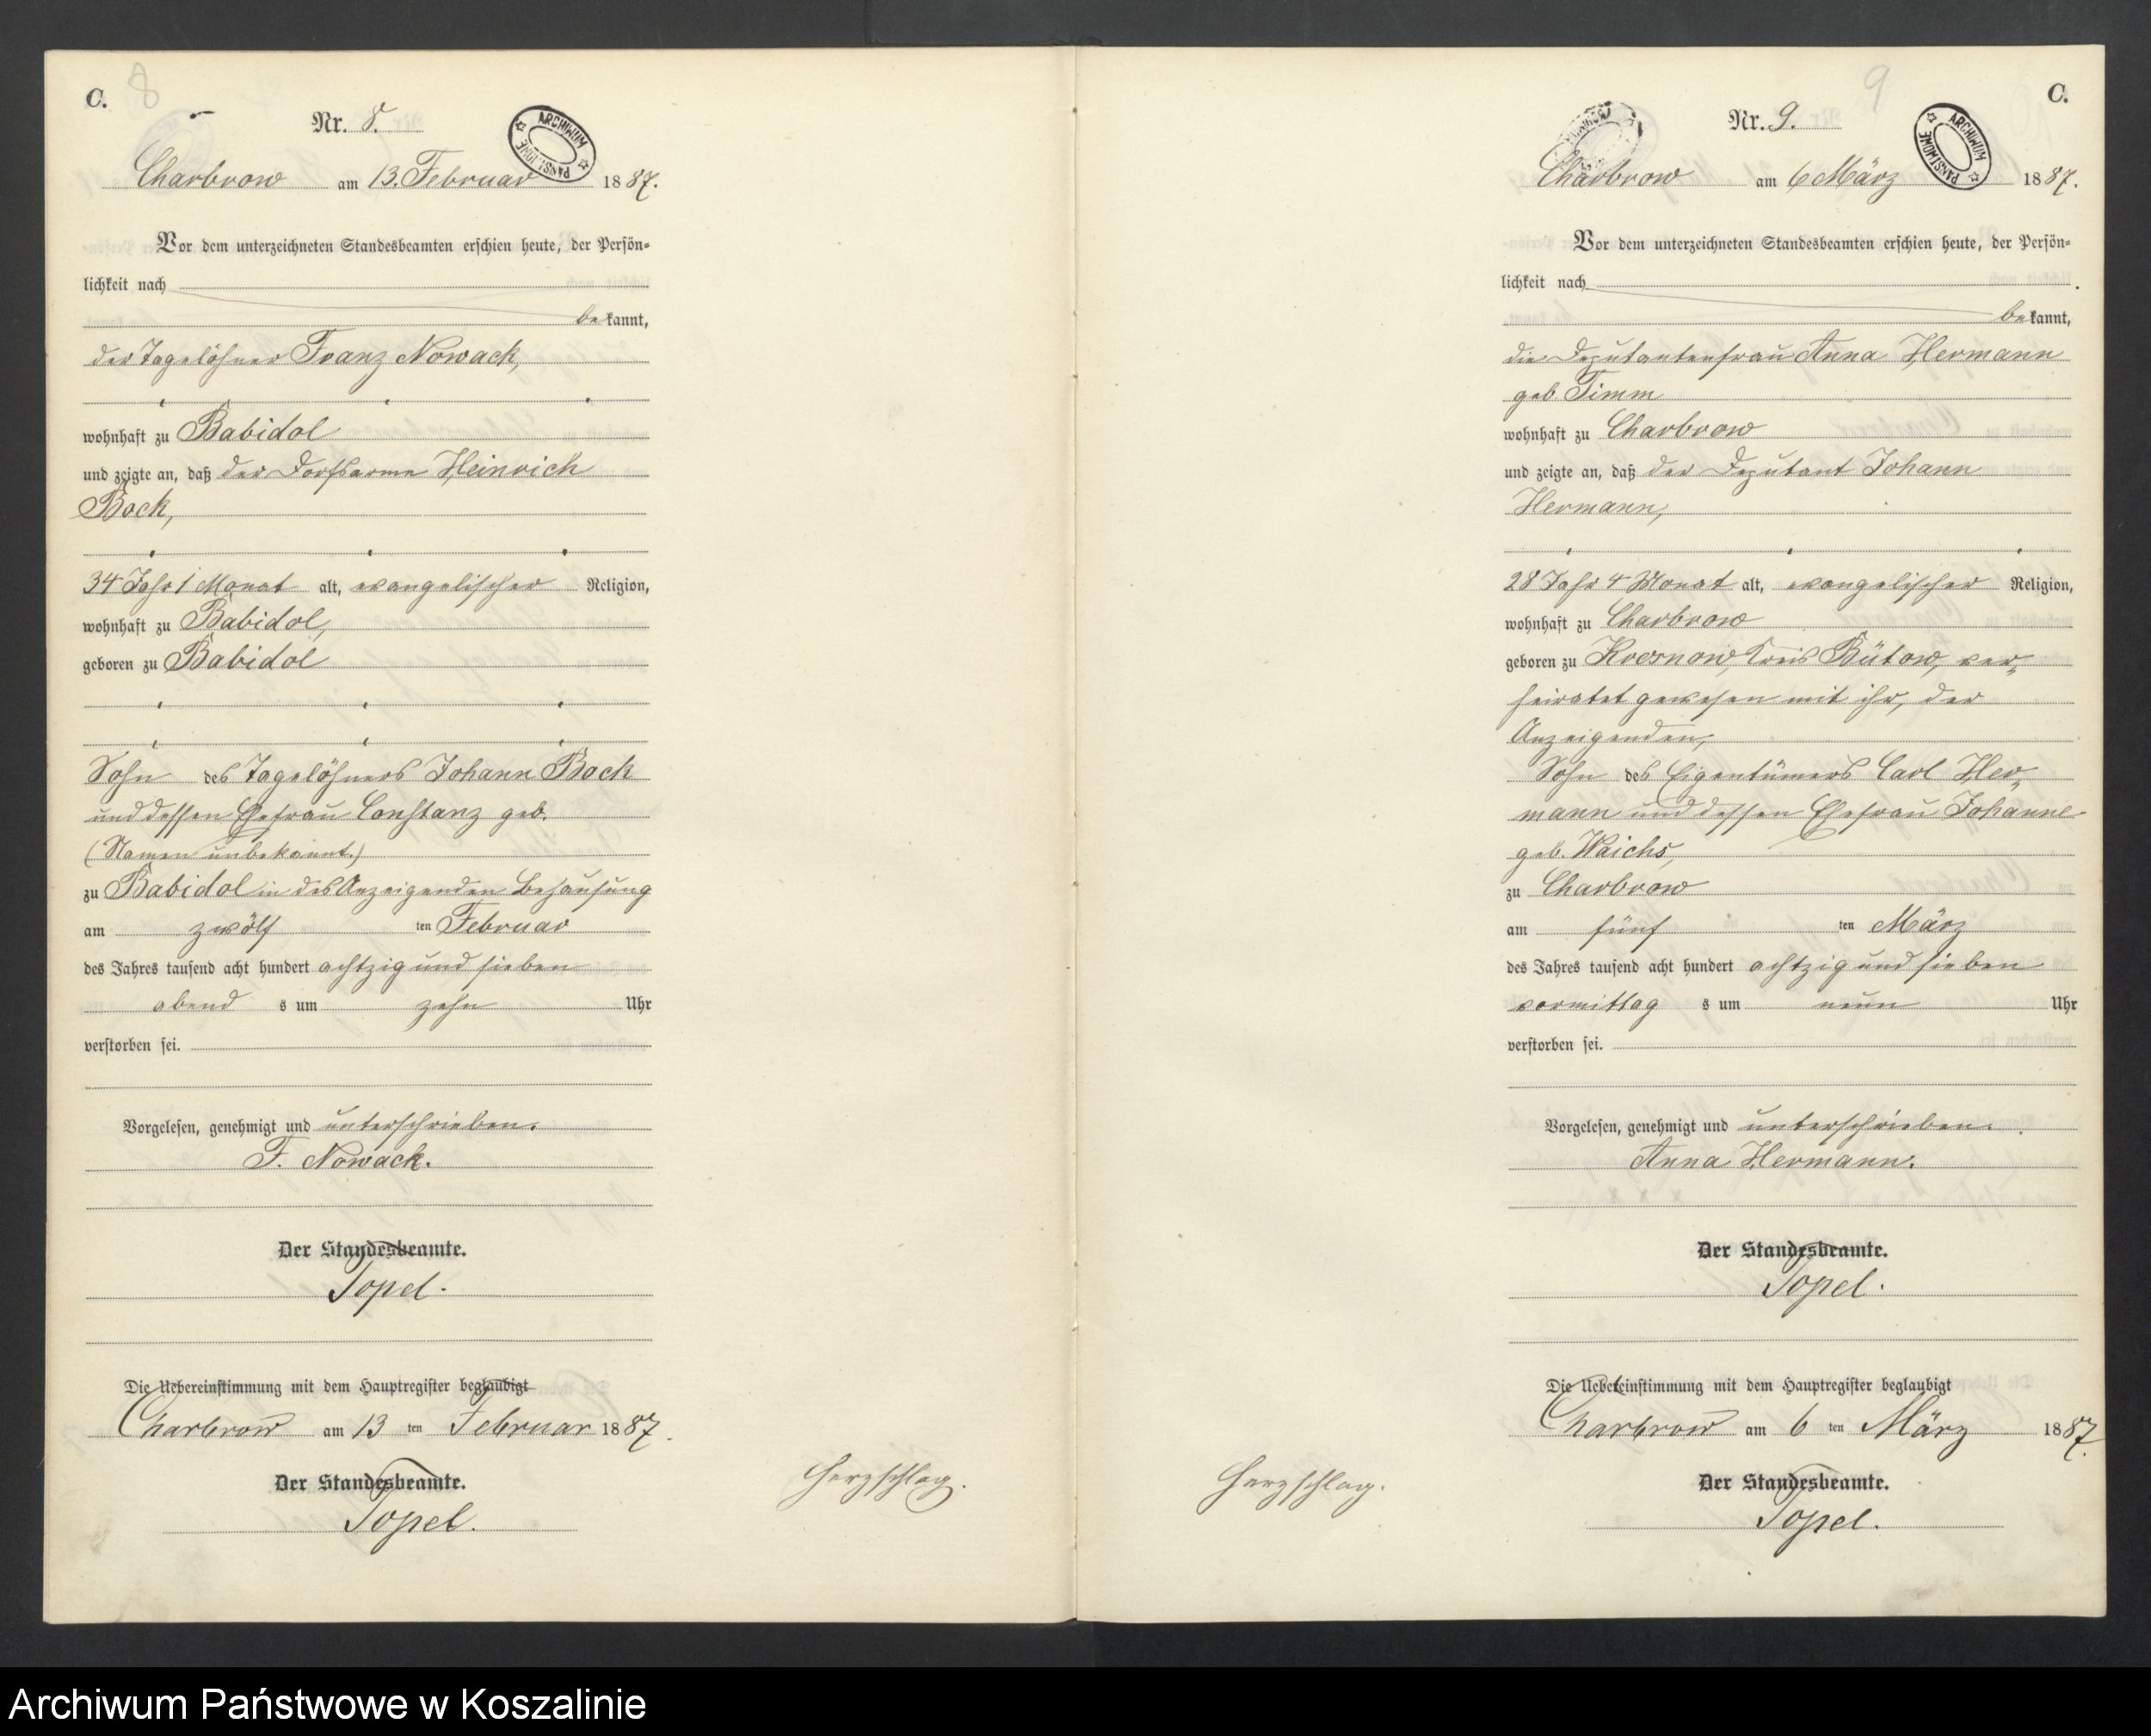 C. 8
Nr. 8.
ARCHIWUM PAŃSTWOWE
Charbrow am 13. Februar 1887.
Vor dem unterzeichneten Standesbeamten erschien heute, der Persön-
lichkeit nach
bekannt,
der Tagelöhner Franz Nowack,
wohnhaft zu Babidol
und zeigte an, daß der Dorfsarme Heinrich
Bock,
34 Jahr 1 Monat alt, evangelischer Religion,
wohnhaft zu Babidol,
geboren zu Babidol
Sohn des Tagelöhners Johann Bock
und dessen Ehefrau Constanz geb.
(Namen unbekannt.)
zu Babidol in des Anzeigenden Behausung
am zwölf ten Februar
des Jahres tausend acht hundert achtzig und sieben
abend s um zehn Uhr
verstorben sei.
Vorgelesen, genehmigt und unterschrieben.
F. Nowack.
Der Standesbeamte.
Topel.
Die Uebereinstimmung mit dem Hauptregister beglaubigt
Charbrow am 13 ten Februar 1887.
Der Standesbeamte.
Topel.
Herzschlag.
9 C.
Nr. 9.
ARCHIWUM PAŃSTWOWE
Charbrow am 6 März 1887.
Vor dem unterzeichneten Standesbeamten erschien heute, der Persön-
lichkeit nach
bekannt,
die Deputantenfrau Anna Hermann
geb. Timm
wohnhaft zu Charbrow
und zeigte an, daß der Deputant Johann
Hermann,
28 Jahr 4 Monat alt, evangelischer Religion,
wohnhaft zu Charbrow
geboren zu Krosnow, Kreis Bütow, ver-
heiratet gewesen mit ihr, der
Anzeigenden,
Sohn des Eigentümers Carl Her-
mann und dessen Ehefrau Johanne
geb. Waichs,
zu Charbrow
am fünf ten März
des Jahres tausend acht hundert achtzig und sieben
vormittag s um neun Uhr
verstorben sei.
Vorgelesen, genehmigt und unterschrieben.
Anna Hermann.
Der Standesbeamte.
Topel.
Die Uebereinstimmung mit dem Hauptregister beglaubigt
Charbrow am 6 ten März 1887.
Der Standesbeamte.
Topel.
Herzschlag.
Archiwum Państwowe w Koszalinie